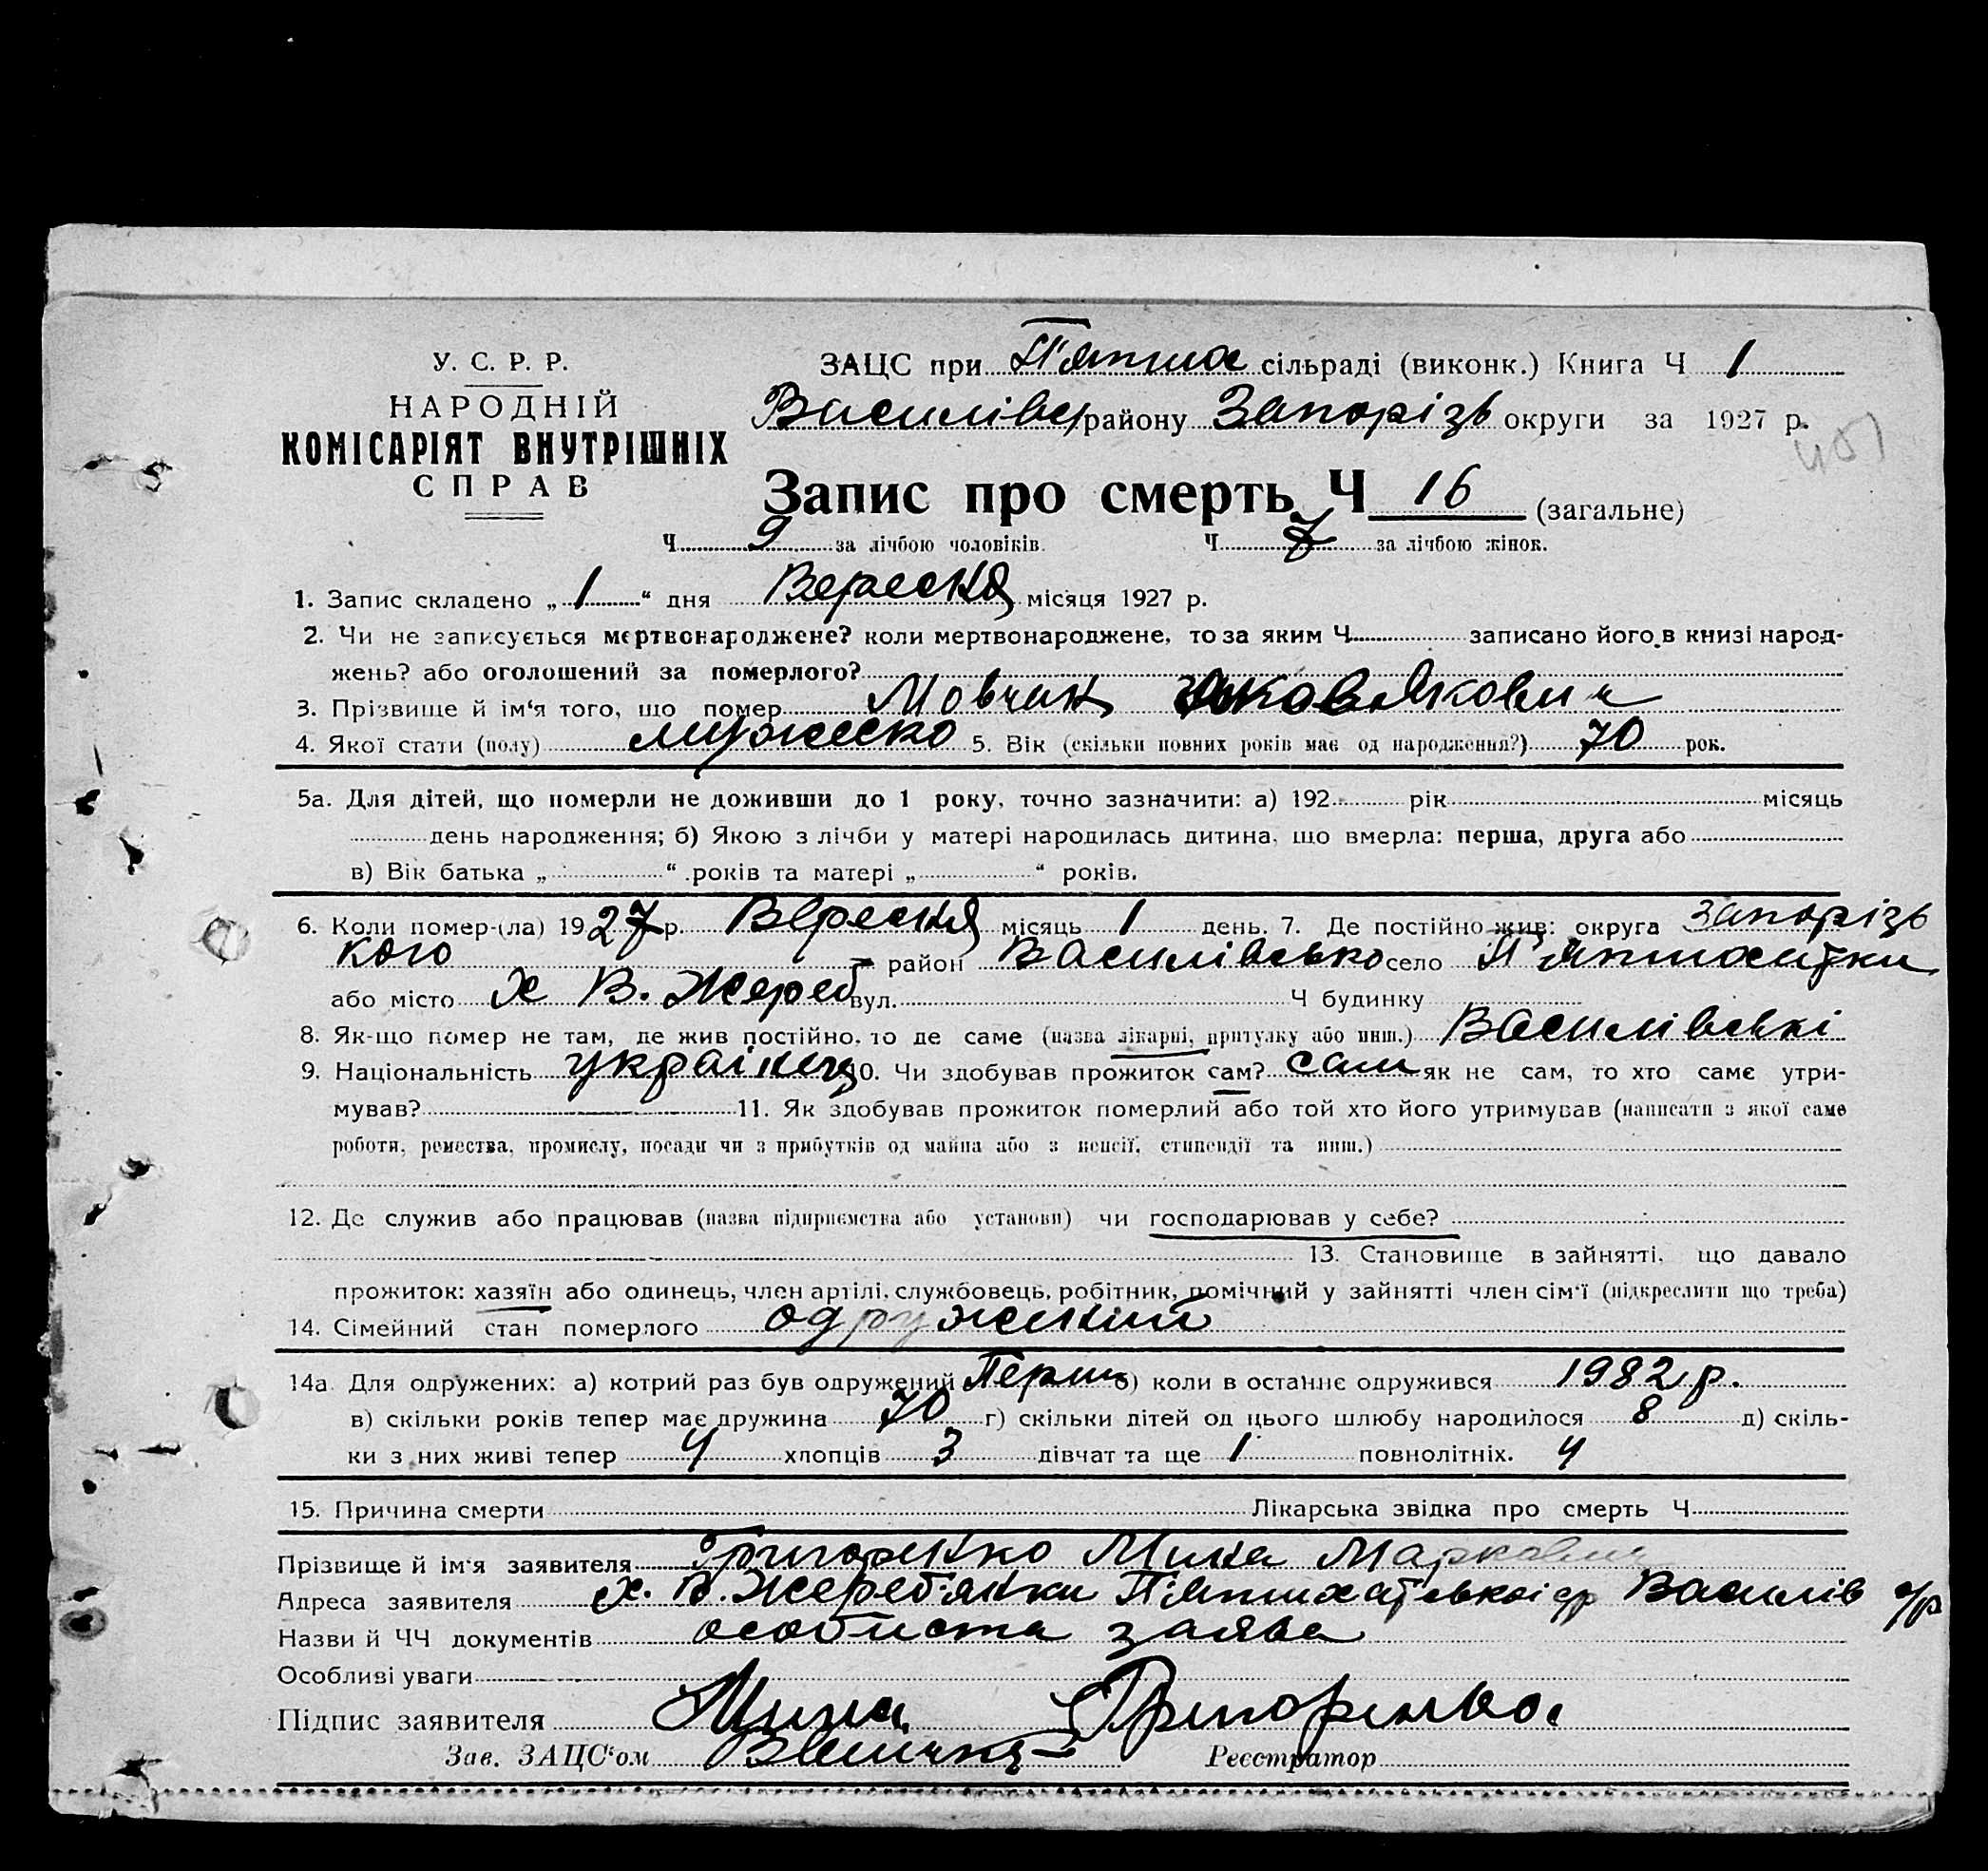 У. С. Р. Р.
НАРОДНІЙ
КОМІСАРІЯТ ВНУТРІШНІХ
СПРАВ
ЗАЦС при П'ятих сільраді (виконк.) Книга Ч 1
Василівс району Запорізь округи за 1927 р.
Запис про смерть Ч 16 (загальне)
Ч 9 за лічбою чоловіків. Ч 7 за лічбою жінок.
1. Запис складено „ 1 “ дня Вересня місяця 1927 р.
2. Чи не записується мертвонароджене? коли мертвонароджене, то за яким Ч записано його в книзі народ-
жень? або оголошений за померлого?
3. Прізвище й ім‘я того, що помер Мовчан Яков Якович
4. Якої стати (полу) мужеско 5. Вік (скільки повних років має од народження?) 70 рок.
5а. Для дітей, що померли не доживши до 1 року, точно зазначити: а) 192 рік місяць
день народження; б) Якою з лічби у матері народилась дитина, що вмерла: перша, друга або
в) Вік батька „ “ років та матері „ “ років.
6. Коли помер-(ла) 1927 р. Вересня місяць 1 день. 7. Де постійно жив: округа Запорізь
кого район Василівсько село П'ятихатки
або місто х В. Жереб вул. Ч будинку
8. Як-що помер не там, де жив постійно, то де саме (назва лікарні, притулку або инш.) Василівські
9. Національність українец 10. Чи здобував прожиток сам? сам як не сам, то хто саме утри-
мував? 11. Як здобував прожиток померлий або той хто його утримував (написати з якої саме
роботи, ремества, промислу, посади чи з прибутків од майна або з пенсії, стипендії та инш.)
12. Де служив або працював (назва підприємства або установи) чи господарював у себе?
13. Становище в зайнятті, що давало
прожиток: хазяїн або одинець, член артілі, службовець, робітник, помічний у зайнятті член сім‘ї (підкреслити що треба)
14. Сімейний стан померлого одружений
14а. Для одружених: а) котрий раз був одружений Перш б) коли в останнє одружився 1982 р.
в) скільки років тепер має дружина 70 г) скільки дітей од цього шлюбу народилося 8 д) скіль-
ки з них живі тепер 4 хлопців 3 дівчат та ще 1 повнолітніх. 4
15. Причина смерти Лікарська звідка про смерть Ч
Прізвище й ім‘я заявителя Григоренко Мина Маркович
Адреса заявителя х. В. Жереб'янки П'ятихатської ср Василів с/р
Назви й ЧЧ документів особиста заява
Особливі уваги
Підпис заявителя Мина Григоренко
Зав. ЗАЦС‘ом Реєстратор